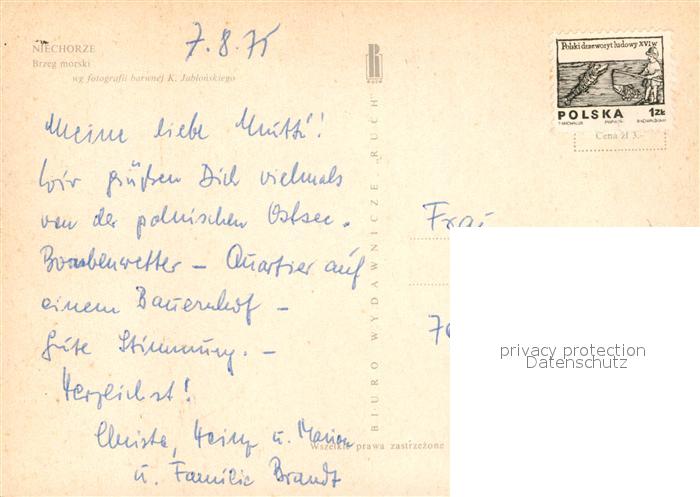 NIECHORZE
Brzeg morski
wg fotografii barwnej K. Jabłońskiego
7.8.75
Meine liebe Mutti!
Wir grüßen Dich vielmals
von der polnischen Ostsee.
Bombenwetter – Quartier auf
einem Bauernhof –
Gute Stimmung. –
Herzlichst!
Christa, Heinz u. Marion
u. Familie Brandt
BIURO WYDAWNICZE „RUCH”
Wszelkie prawa zastrzeżone
Polski drzeworyt ludowy XVI w
POLSKA 1ZŁ
Cena zł 3.-
Frau
70
privacy protection
Datenschutz